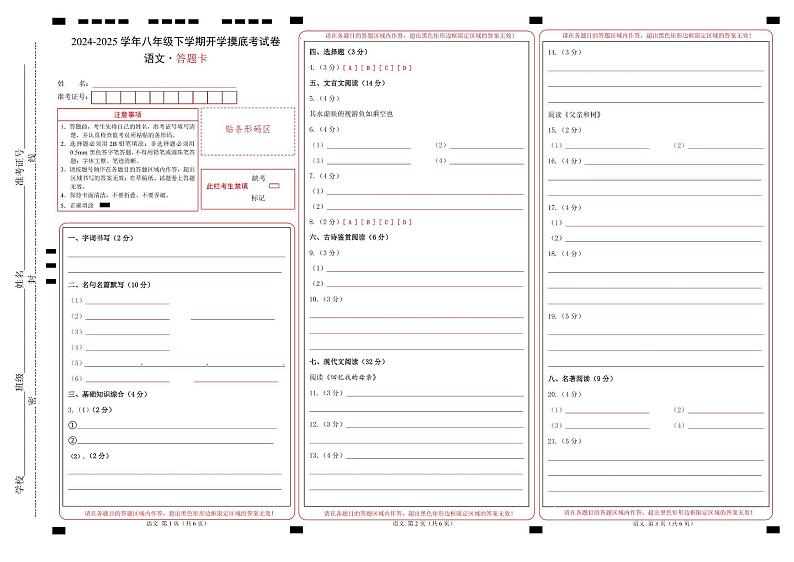 2024-2025 学年八年级下学期开学摸底考试卷
语文·答题卡
姓 名：
准考证号：
注意事项
1．答题前，考生先将自己的姓名，准考证号填写清
楚，并认真检查监考员所粘贴的条形码。
2．选择题必须用 2B 铅笔填涂；非选择题必须用
0.5mm 黑色签字笔答题，不得用铅笔或圆珠笔答
题；字体工整、笔迹清晰。
3．请按题号顺序在各题目的答题区域内作答，超出
区域书写的答案无效；在草稿纸、试题卷上答题
无效。
4．保持卡面清洁，不要折叠、不要弄破。
5．正确填涂
贴条形码区
此栏考生禁填
缺考
标记
学校
班级
姓名
准考证号
密
封
线
一、字词书写（2 分）
二、名句名篇默写（10 分）
（1）
（2）
（3）
（4）
（5）
（6）
三、基础知识综合（4 分）
3.（1）（2 分）
①
②
（2）.（2 分）
请在各题目的答题区域内作答，超出黑色矩形边框限定区域的答案无效！
语文 第 1 页（共 6 页）
请在各题目的答题区域内作答，超出黑色矩形边框限定区域的答案无效！
四、选择题（3 分）
4.（3 分）[ A ] [ B ] [ C ] [ D ]
五、文言文阅读（14 分）
5.（4 分）
其水虚映的视游鱼如乘空也
6.（4 分）
（1） （2）
（3） （4）
7.（4 分）
（1）
（2）
8.（2 分）[ A ] [ B ] [ C ] [ D ]
六、古诗鉴赏阅读（6 分）
9.（3 分）
（1）
（2）
10.（3 分）
七、现代文阅读（32 分）
阅读《回忆我的母亲》
11.（3 分）
12.（3 分）
13.（4 分）
请在各题目的答题区域内作答，超出黑色矩形边框限定区域的答案无效！
语文 第 2 页（共 6 页）
请在各题目的答题区域内作答，超出黑色矩形边框限定区域的答案无效！
14.（3 分）
阅读《父亲和树》
15.（2 分）
（1） （2）
16.（4 分）
17.（4 分）
（1）
（2）
18.（4 分）
19.（5 分）
八、名著阅读（9 分）
20.（4 分）
（1） （2）
（3） （4）
21.（5 分）
请在各题目的答题区域内作答，超出黑色矩形边框限定区域的答案无效！
语文 第 3 页（共 6 页）